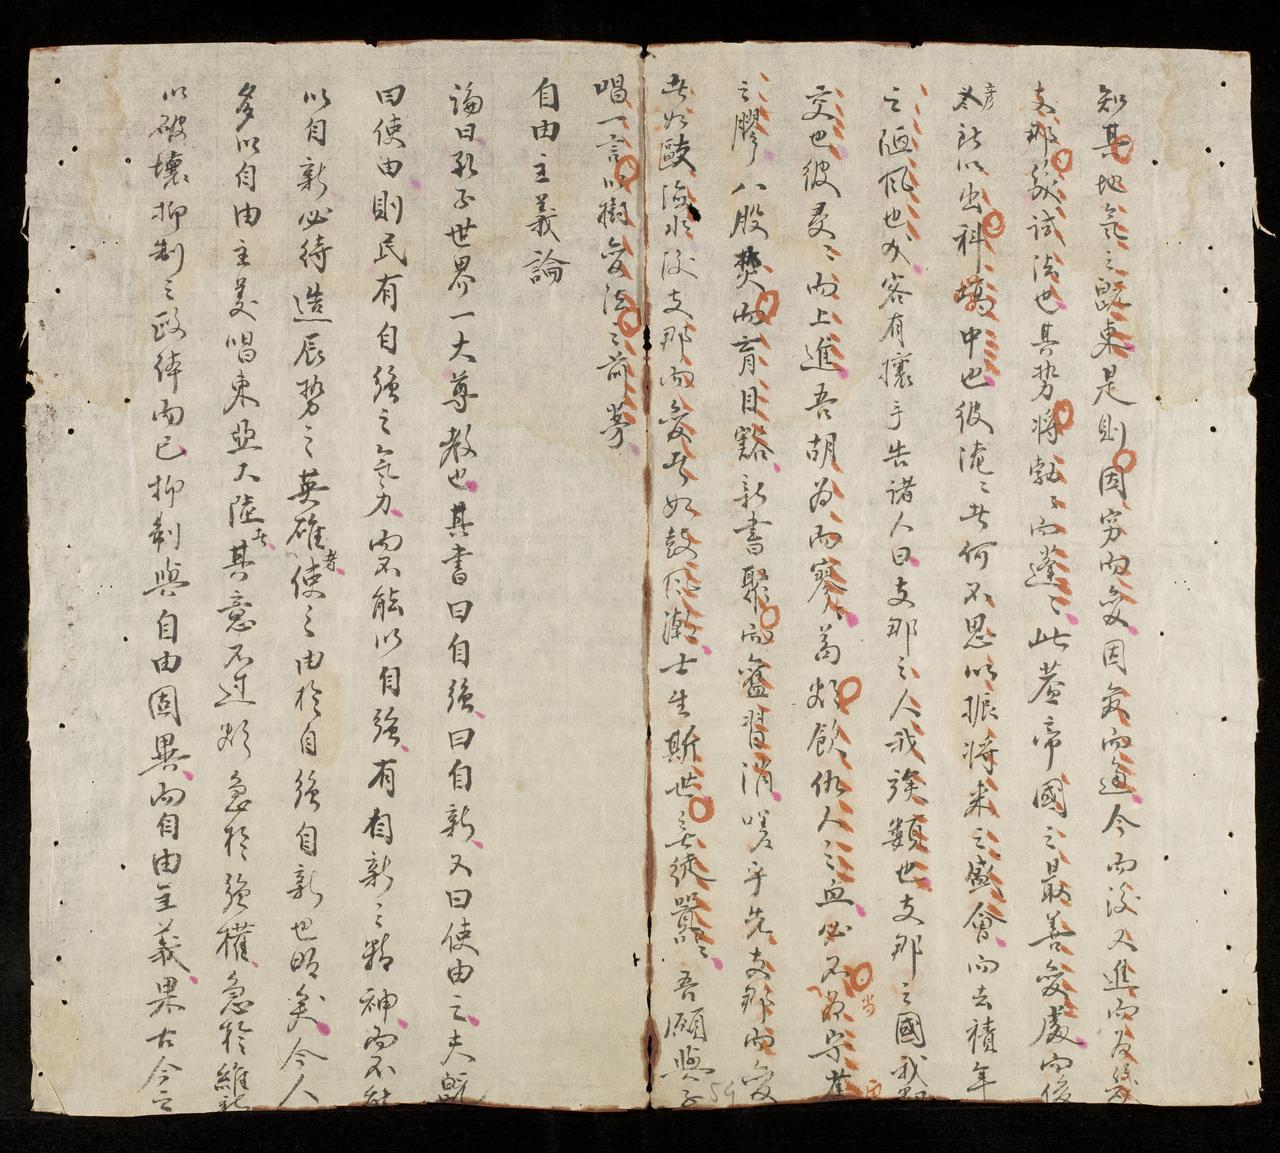 知其地氣之既東是則因窮而変因変而通今而後又進而為
支那設試法也其势將勃々而蓬々此蓋帝國之最善変處而後
彦
太所以出科塲中也彼淹々者何不思以振將来之盛會而去積年
之陋風也客有攘手告諸人曰支那之人我族類也支那之國我
交也彼戛々而上進吾胡为而寥々葛奴飲仇人之血必不
当
之膠八股焚而育目豁新書聚而舊習消嗟乎先支那而変
者如歐海水後支那而変者如鼓風潮士生斯世之徒囂々吾願與子
唱一言以樹変法之前茅
自由主義論
論曰孔子世界一大尊教也其書曰自強曰自新又曰使由之夫既
曰使由則民有自強之氣力而不能以自強有自新之精神而不能
以自新必待造辰势之英雄者使之由於自強自新也明矣今人
多以自由主義唱東亞大陸者其意不过欲急於強權急於維新
以破壞抑制之政体而已抑制與自由固異而自由主義果古今之
59